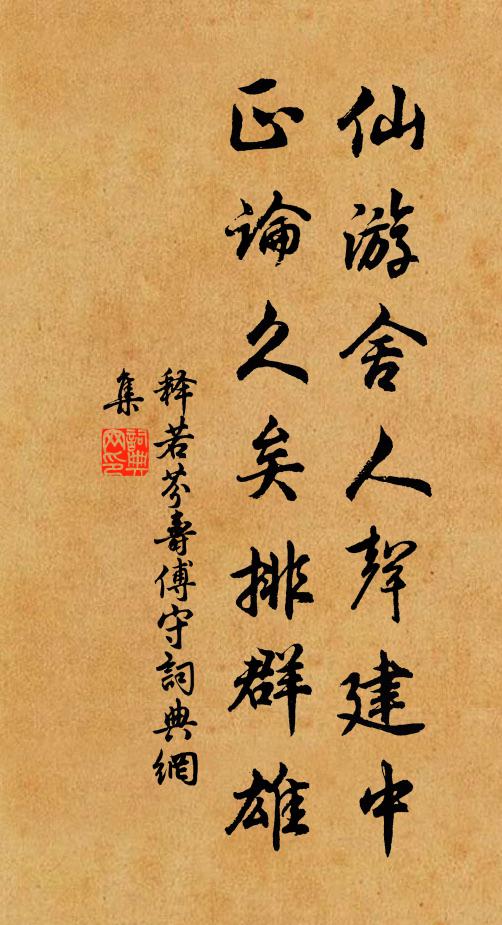 仙游舍人聲建中
正論久矣排群雄
释若芬壽傅守詞典網
集
詞典
网印